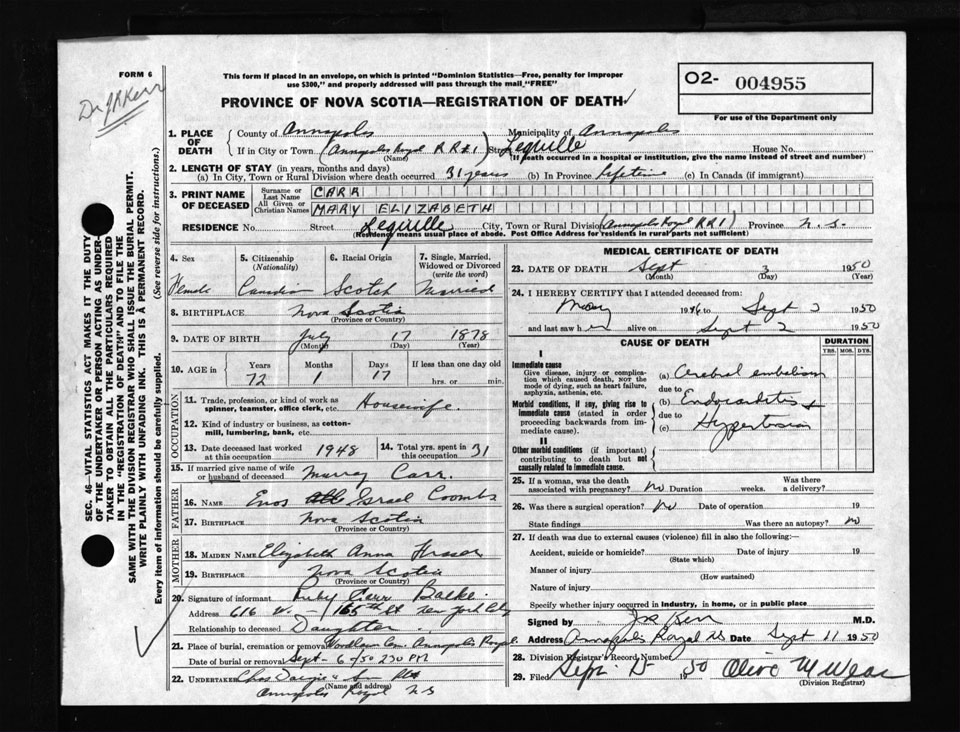 FORM 6
Dr J R Kerr
This form if placed in an envelope, on which is printed "Dominion Statistics—Free, penalty for improper
use $300," and properly addressed will pass through the mail "FREE"
PROVINCE OF NOVA SCOTIA—REGISTRATION OF DEATH
O2- 004955
For use of the Department only
1. PLACE OF DEATH County of Annapolis Municipality of Annapolis
If in City or Town (Annapolis Royal R R #1) Street Lequille House No.
(Name) (If death occurred in a hospital or institution, give the name instead of street and number)
2. LENGTH OF STAY (in years, months and days)
(a) In City, Town or Rural Division where death occurred 31 years (b) In Province Lifetime (c) In Canada (if immigrant)
3. PRINT NAME OF DECEASED Surname or Last Name CARR
All Given or Christian Names MARY ELIZABETH
RESIDENCE No. Street Lequille City, Town or Rural Division (Annapolis Royal RR 1) Province N.S.
(Residence means usual place of abode. Post Office Address for residents in rural parts not sufficient)
4. Sex Female
5. Citizenship (Nationality) Canadian
6. Racial Origin Scotch
7. Single, Married, Widowed or Divorced (write the word) Married
8. BIRTHPLACE Nova Scotia
(Province or Country)
9. DATE OF BIRTH July 17 1878
(Month) (Day) (Year)
10. AGE in Years 72 Months 1 Days 17 If less than one day old
hrs. or min.
OCCUPATION
11. Trade, profession, or kind of work as
spinner, teamster, office clerk, etc. Housewife.
12. Kind of industry or business, as cotton-
mill, lumbering, bank, etc.
13. Date deceased last worked at this occupation 1948
14. Total yrs. spent in this occupation 31
15. If married give name of wife
or husband of deceased Murray Carr.
FATHER
16. NAME Enos Israel Coombs
17. BIRTHPLACE Nova Scotia
(Province or Country)
MOTHER
18. MAIDEN NAME Elizabeth Anna Fraser
19. BIRTHPLACE Nova Scotia
(Province or Country)
20. Signature of informant Ruby Carr
Address 616 W. — 165th St New York City
Relationship to deceased Daughter
21. Place of burial, cremation or removal Woodlawn Cem. Annapolis Royal.
Date of burial or removal Sept - 6 of 50 2 30 PM
22. UNDERTAKER Chas & Son
(Name and address)
Annapolis Royal NS
MEDICAL CERTIFICATE OF DEATH
23. DATE OF DEATH Sept 3 1950
(Month) (Day) (Year)
24. I HEREBY CERTIFY that I attended deceased from:
May 1946 to Sept 2 1950
and last saw her alive on Sept 2 1950
CAUSE OF DEATH
DURATION
YRS. MOS. DYS.
I
Immediate cause
Give disease, injury or complica-
tion which caused death, not the
mode of dying, such as heart failure,
asphyxia, asthenia, etc.
(a) Cerebral embolism
due to
Morbid conditions, if any, giving rise to
immediate cause (stated in order
proceeding backwards from im-
mediate cause).
(b) Endocarditis &
due to
(c) Hypertension
II
Other morbid conditions (if important)
contributing to death but not
causally related to immediate cause.
25. If a woman, was the death
associated with pregnancy? No Duration weeks. Was there a delivery?
26. Was there a surgical operation? No Date of operation 19
State findings Was there an autopsy? no
27. If death was due to external causes (violence) fill in also the following:—
Accident, suicide or homicide? Date of injury 19
(State which)
Manner of injury
(How sustained)
Nature of injury
Specify whether injury occurred in industry, in home, or in public place
Signed by J R Kerr M.D.
Address Annapolis Royal NS Date Sept 11 1950
28. Division Registrar's Record Number
29. Filed Sept 15 1950 Olive M Wear
(Division Registrar)
SEC. 46—VITAL STATISTICS ACT MAKES IT THE DUTY
OF THE UNDERTAKER OR PERSON ACTING AS UNDER-
TAKER TO OBTAIN ALL THE PARTICULARS REQUIRED
IN THE "REGISTRATION OF DEATH" AND TO FILE THE
SAME WITH THE DIVISION REGISTRAR WHO SHALL ISSUE THE BURIAL PERMIT.
WRITE PLAINLY WITH UNFADING INK. THIS IS A PERMANENT RECORD.
Every item of information should be carefully supplied. (See reverse side for instructions.)